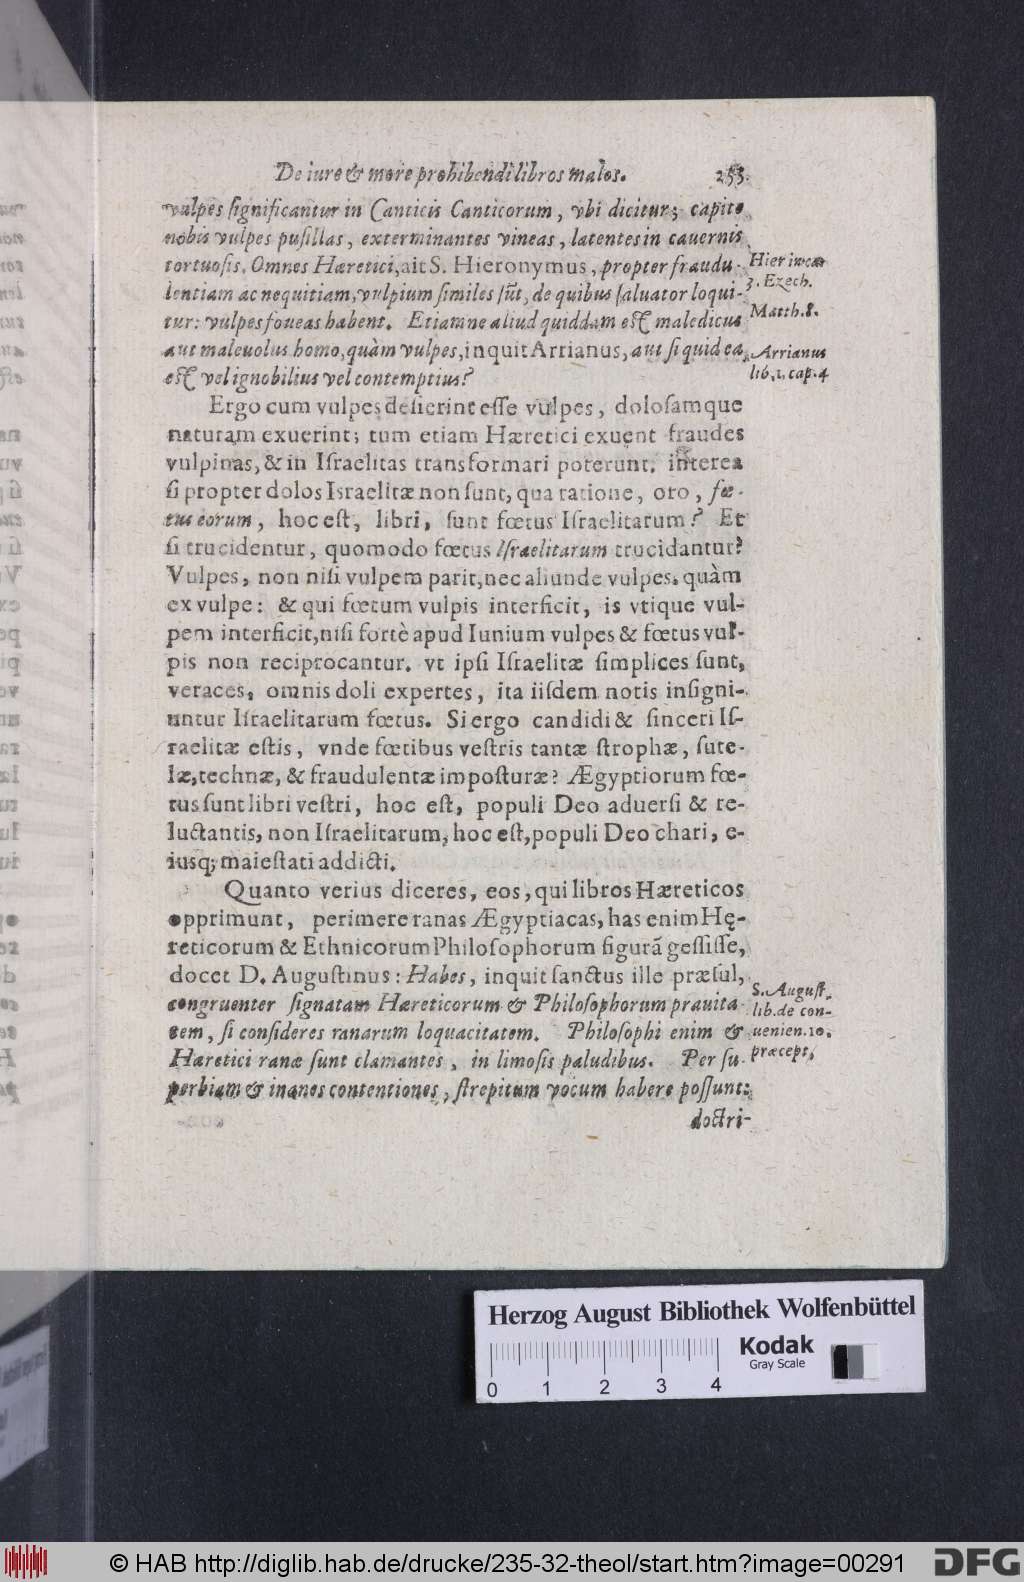 De iure & more prohibendi libros malos. 253.
vulpes significantur in Canticis Canticorum, vbi dicitur; capite
nobis vulpes pusillas, exterminantes vineas, latentes in cauernis
tortuosis. Omnes Hæretici, ait S. Hieronymus, propter fraudu-
lentiam ac nequitiam, vulpium similes sūt, de quibus saluator loqui-
tur: vulpes foueas habent. Etiamne aliud quiddam est maledicus
aut maleuolus homo, quàm vulpes, inquit Arrianus, aut si quid ea
est vel ignobilius vel contemptius?
Hier in cap.
3. Ezech.
Matth. 8.
Arrianus
lib. 1. cap. 4
Ergo cum vulpes desierint esse vulpes, dolosamque
naturam exuerint; tum etiam Hæretici exuent fraudes
vulpinas, & in Israelitas transformari poterunt. interea
si propter dolos Israelitæ non sunt, qua ratione, oro, fœ-
tus eorum, hoc est, libri, sunt fœtus Israelitarum? Et
si trucidentur, quomodo fœtus Israelitarum trucidantur?
Vulpes, non nisi vulpem parit, nec aliunde vulpes. quàm
ex vulpe: & qui fœtum vulpis interficit, is vtique vul-
pem interficit, nisi fortè apud Iunium vulpes & fœtus vul-
pis non reciprocantur. vt ipsi Israelitæ simplices sunt,
veraces, omnis doli expertes, ita iisdem notis insigni-
untur Israelitarum fœtus. Si ergo candidi & sinceri Is-
raelitæ estis, vnde fœtibus vestris tantæ strophæ, sute-
læ, technæ, & fraudulentæ imposturæ? Ægyptiorum fœ-
tus sunt libri vestri, hoc est, populi Deo aduersi & re-
luctantis, non Israelitarum, hoc est, populi Deo chari, e-
iusq; maiestati addicti.
Quanto verius diceres, eos, qui libros Hæreticos
opprimunt, perimere ranas Ægyptiacas, has enim Hę-
reticorum & Ethnicorum Philosophorum figurā gessisse,
docet D. Augustinus: Habes, inquit sanctus ille præsul,
congruenter signatam Hæreticorum & Philosophorum prauita-
tem, si consideres ranarum loquacitatem. Philosophi enim &
Hæretici ranæ sunt clamantes, in limosis paludibus. Per su-
perbiam & inanes contentiones, strepitum vocum habere possunt:
S. August.
lib. de con-
uenien. 10.
præcept,
doctri-
Herzog August Bibliothek Wolfenbüttel
Kodak
Gray Scale
0 1 2 3 4
© HAB http://diglib.hab.de/drucke/235-32-theol/start.htm?image=00291
DFG